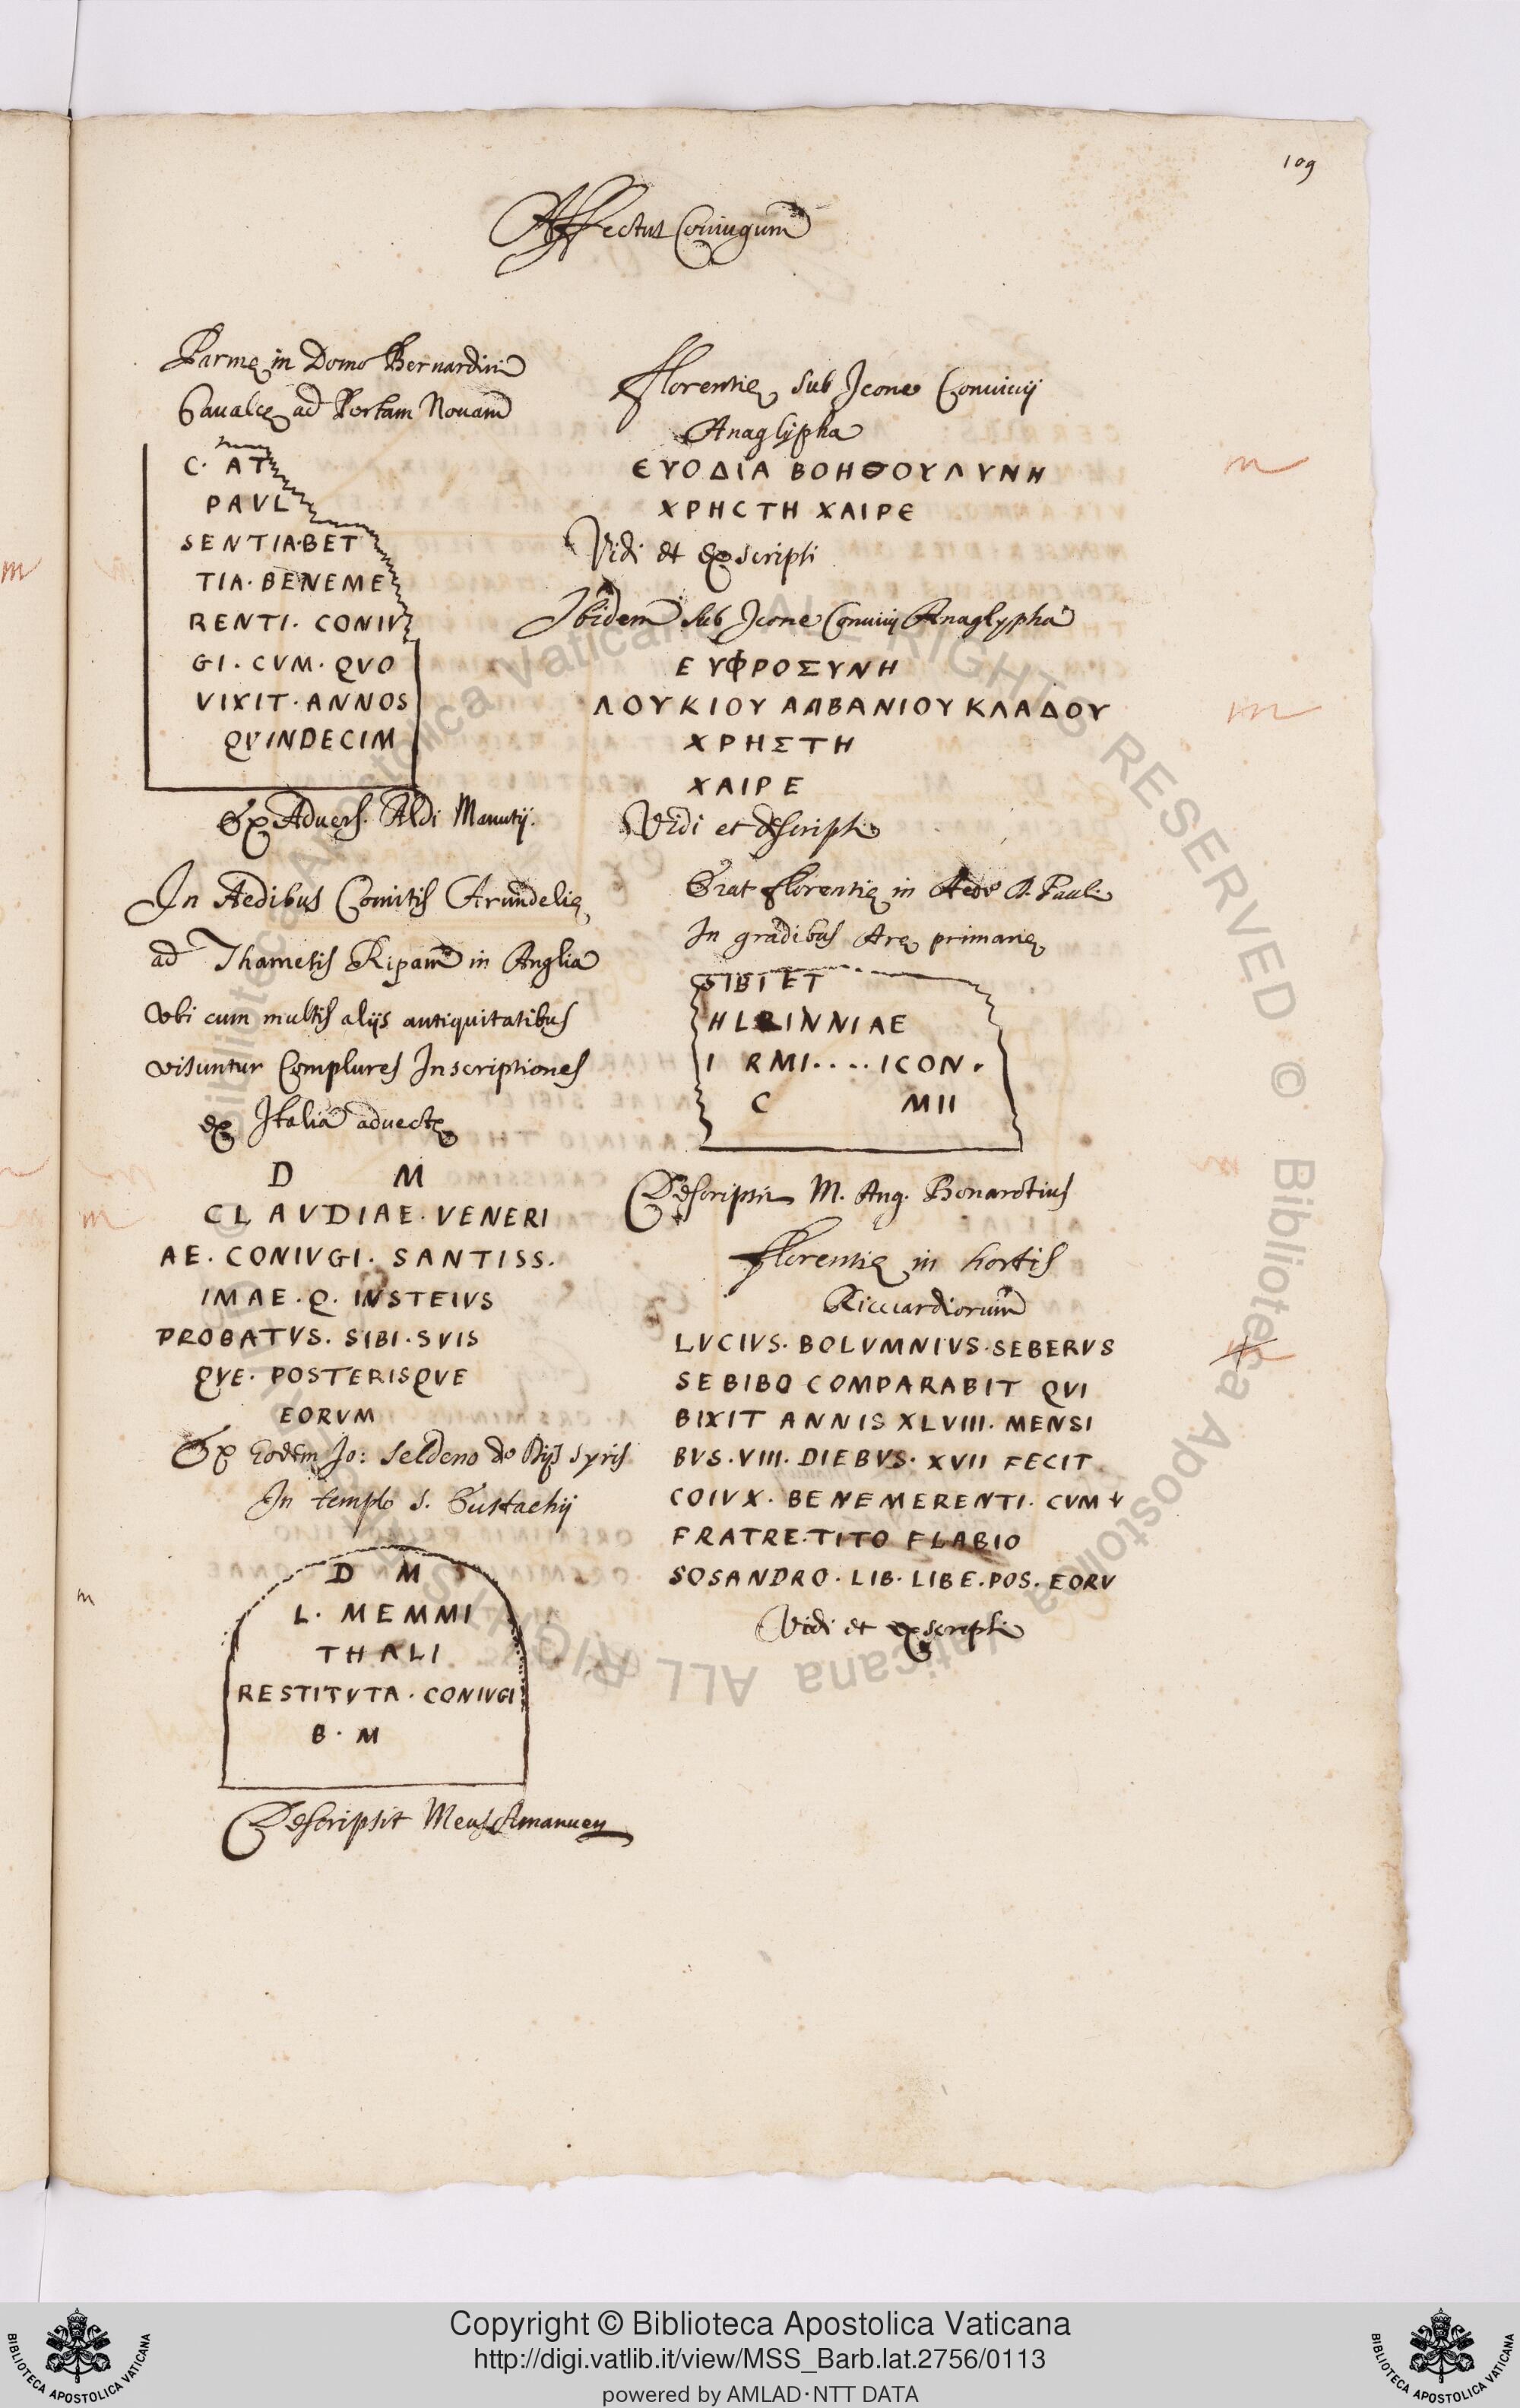 109
Affectus Coniugum
Parmę in Domo Bernardini
Cavalcę ad Portam Novam
C. AT
PAVL
SENTIA·BET
TIA·BENEME
RENTI. CONIV
GI. CVM. QVO
VIXIT. ANNOS
QVINDECIM
Ex Advers. Aldi Manutij.
In Aedibus Comitis Arundelię
ad Thametis Ripam in Anglia
ubi cum multis alijs antiquitatibus
visuntur Complures Inscriptiones
ex Italia advectę
D M
CLAVDIAE. VENERI
AE. CONIVGI. SANTISS.
IMAE. Q. INSTEIVS
PROBATVS. SIBI. SVIS
QVE. POSTERISQVE
EORVM
Ex Eodem Jo: Seldeno de Dijs Syris
In templo S. Eustachij
D M
L. MEMMI
THALI
RESTITVTA. CONIVGI
B. M
Descripsit Meus Amanuen
Florentię sub Icone Convivij
Anaglypha
ЄΥΟΔΙΑ ΒΟΗΘΟΥ ΛΥΝΗ
ΧΡΗϹΤΗ ΧΑΙΡЄ
Vidi et exscripsi
Ibidem sub Icone Convivij Anaglypha
ΕΥΦΡΟΣΥΝΗ
ΛΟΥΚΙΟΥ ΑΛΒΑΝΙΟΥ ΚΛΑΔΟΥ
ΧΡΗΣΤΗ
ΧΑΙΡΕ
Vidi et descripsi
Erat Florentię in Aede D. Pauli
In gradibus Arę primarię
SIBI ET
HLRINNIAE
I RMI.... ICON.
C MII
Descripsit M. Ang. Bonarotius
Florentię in hortis
Riccardiorum
LVCIVS. BOLVMNIVS. SEBERVS
SE BIBO COMPARABIT QVI
BIXIT ANNIS XLVIII. MENSI
BVS. VIII. DIEBVS. XVII FECIT
COIVX. BENEMERENTI. CVM
FRATRE. TITO FLABIO
SOSANDRO. LIB. LIBE. POS. EORV
Vidi et exscripsi
Copyright © Biblioteca Apostolica Vaticana
http://digi.vatlib.it/view/MSS_Barb.lat.2756/0113
powered by AMLAD·NTT DATA